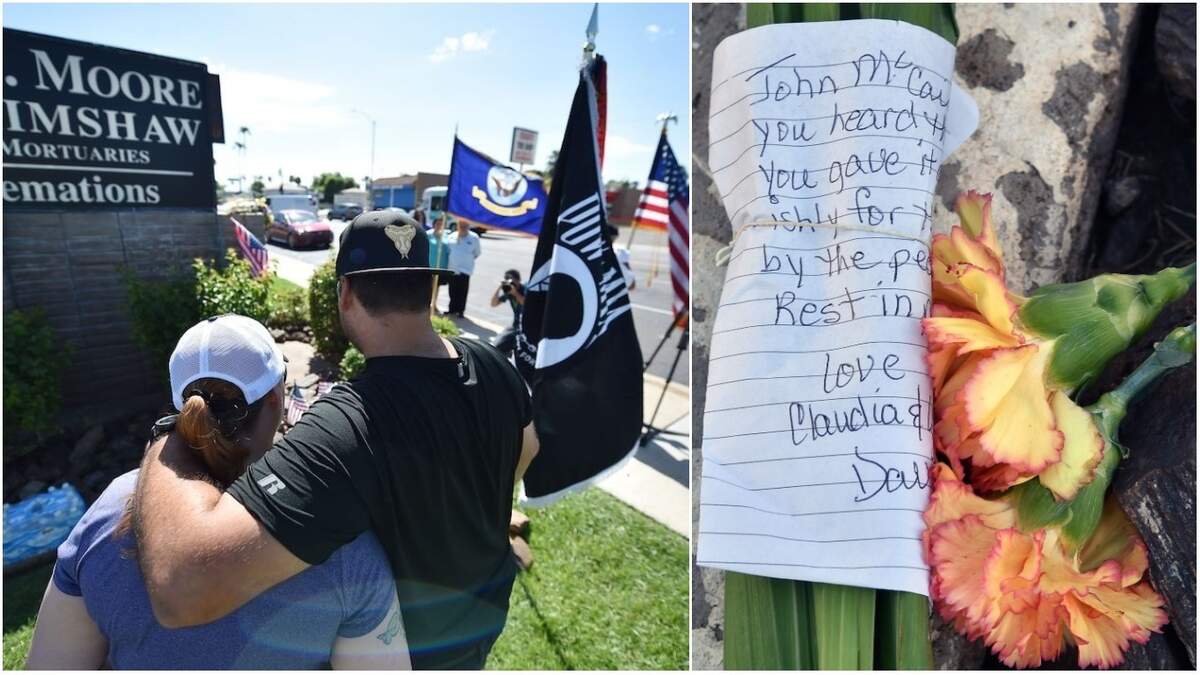 . MOORE
IMSHAW
MORTUARIES
remations
R
John McCai
you heard th
you gave it
ishly for th
by the pe
Rest in
Love
Claudia &
Dav